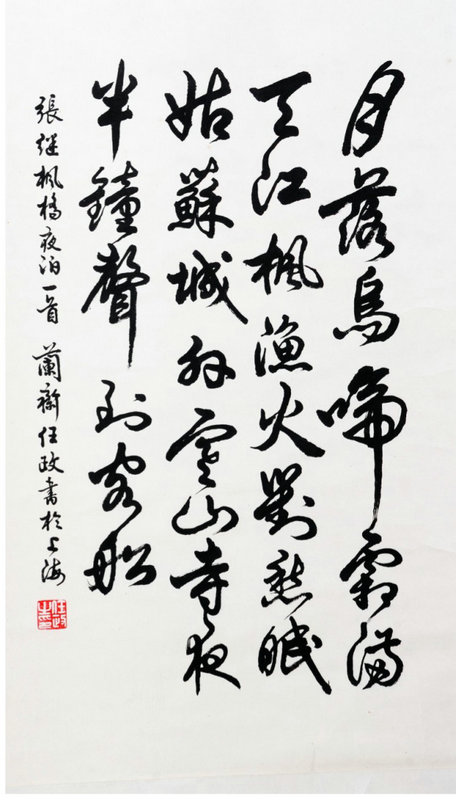 月落烏啼霜滿
天江楓漁火對愁眠
姑蘇城外寒山寺夜
半鐘聲到客船
張继楓橋夜泊一首 蘭齋任政書於上海
任政之印